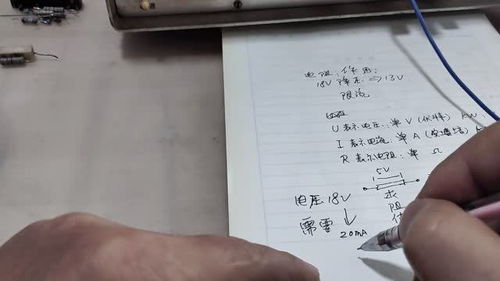 电阻：作用：
18V 降压 → 13V
限流
U 表示电压：单 V（伏特）
I 表示电流：单 A
R 表示电阻：单 Ω
5V
求
阻
电压 18V
需要 20mA